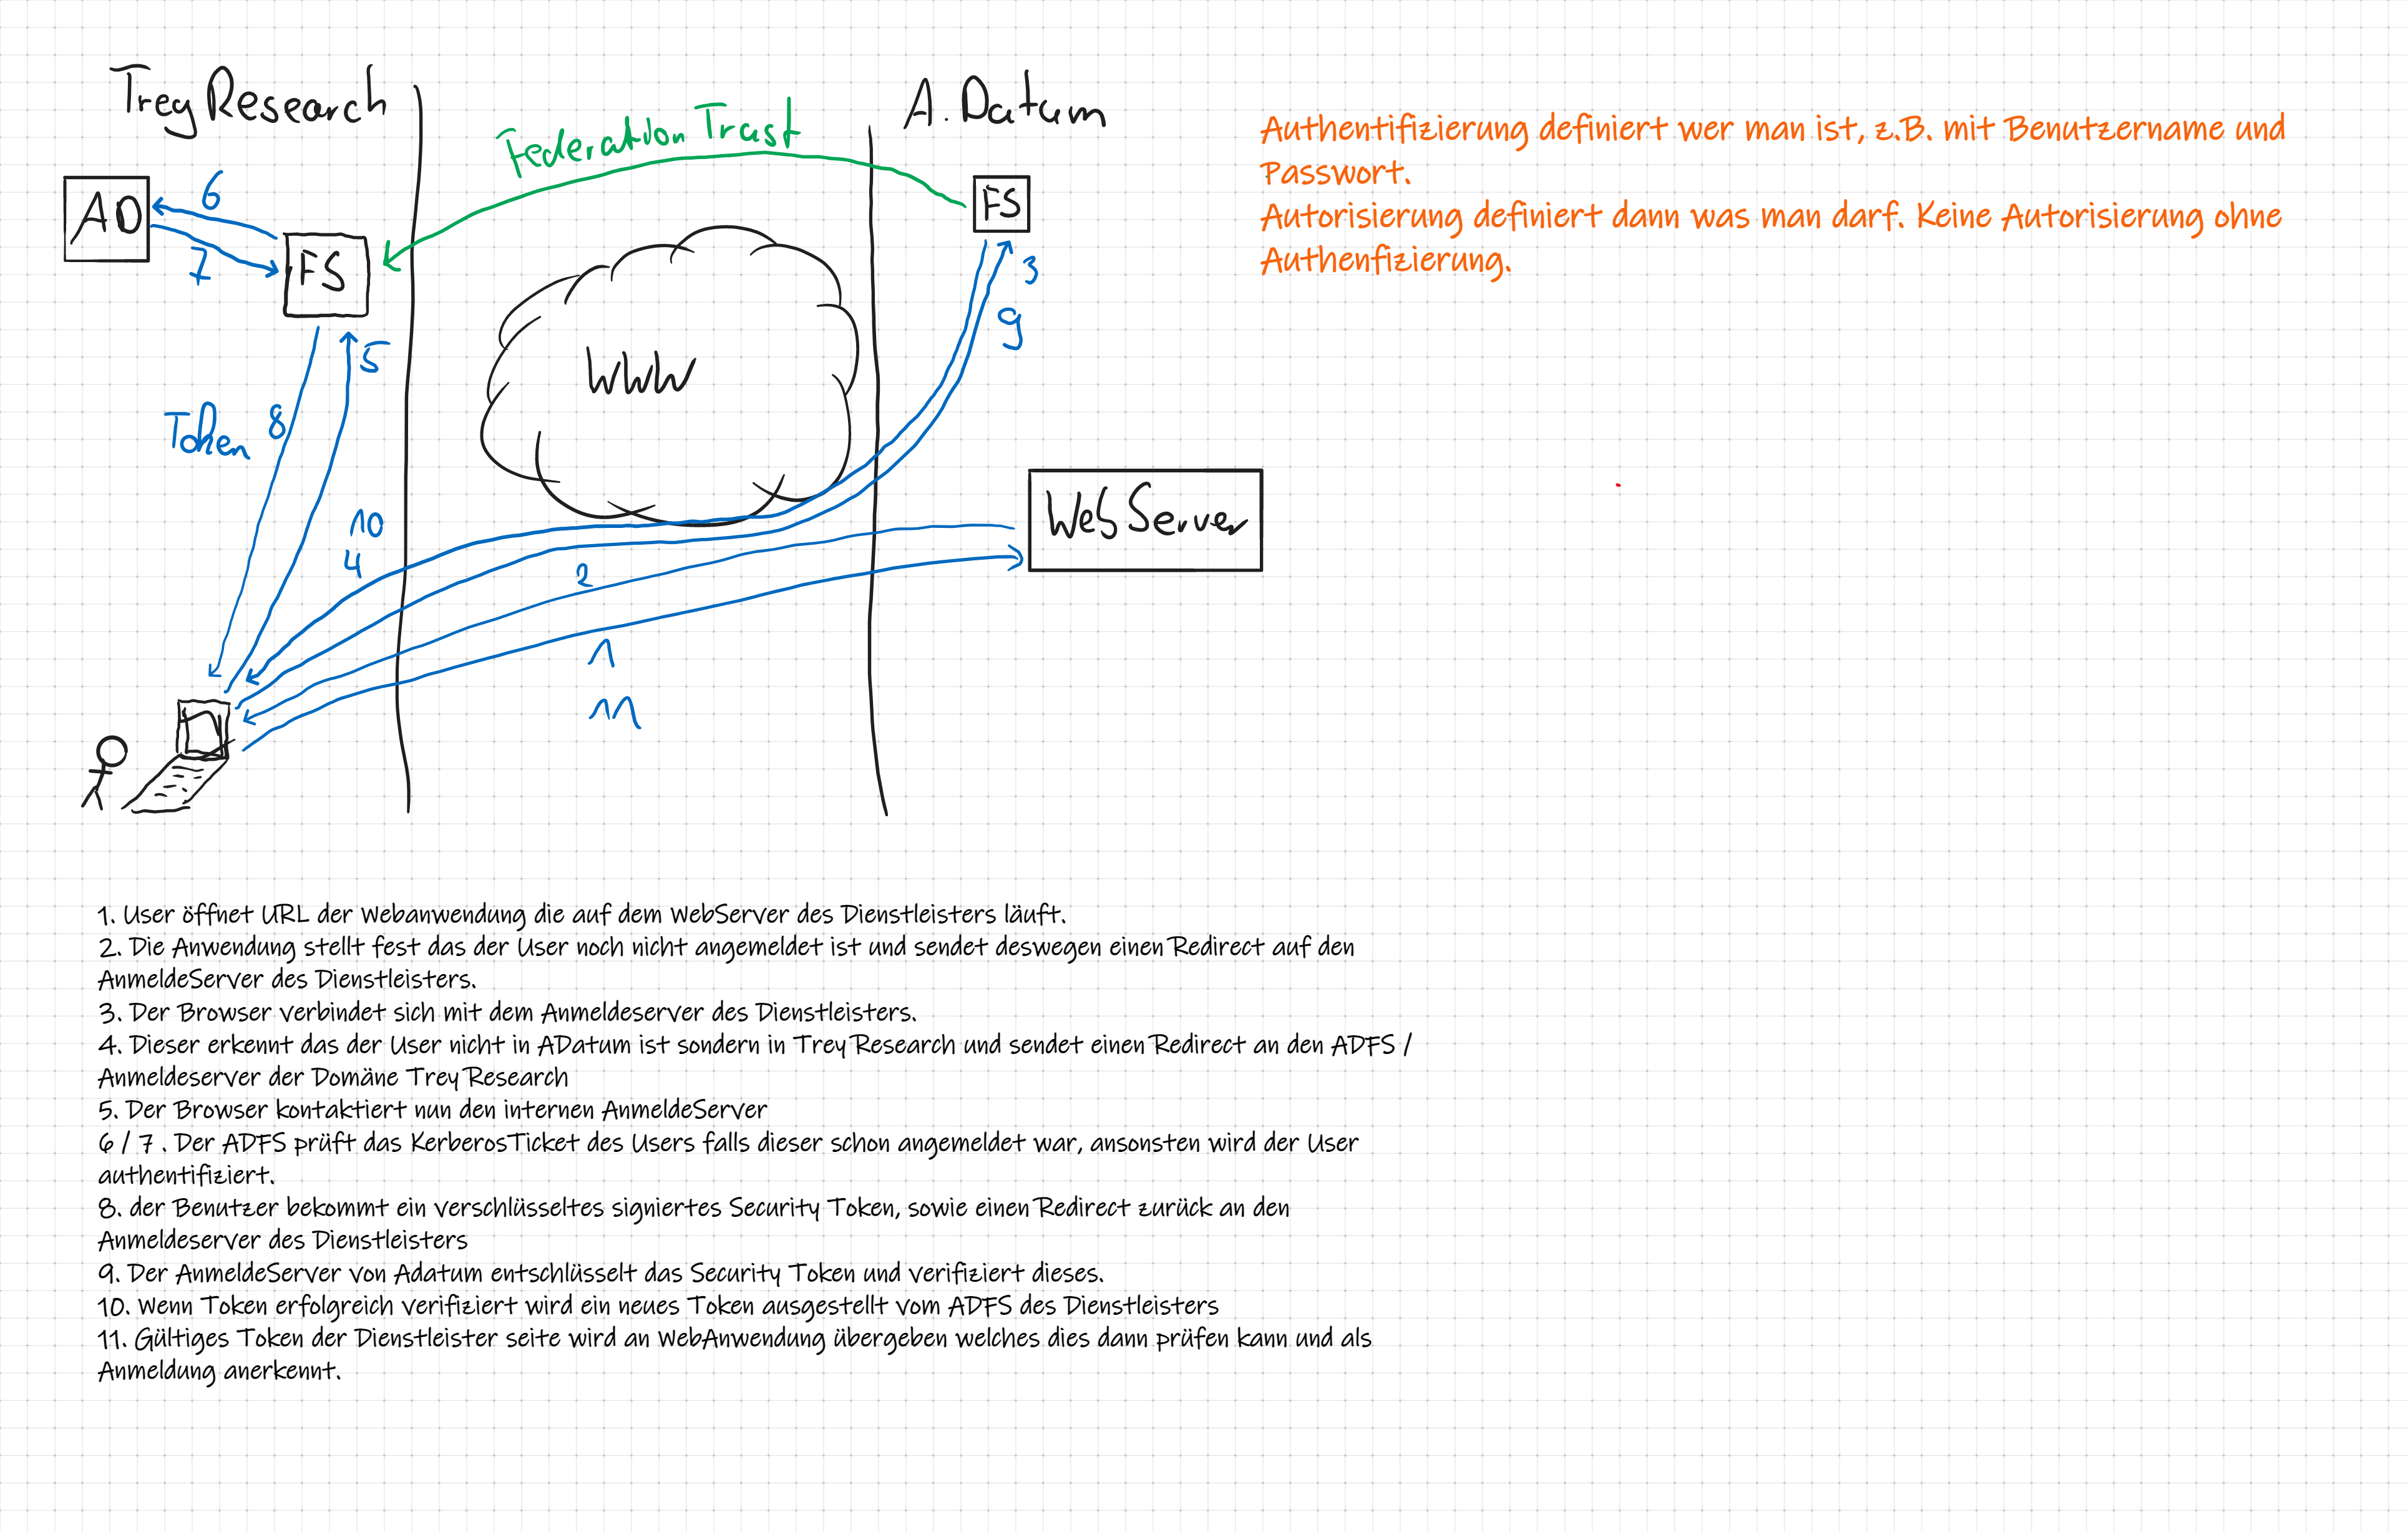 Trey Research
A. Datum
Federation Trust
Authentifizierung definiert wer man ist, z.B. mit Benutzername und
Passwort.
Autorisierung definiert dann was man darf. Keine Autorisierung ohne
Authenfizierung.
AD
6
7
FS
FS
3
9
5
WWW
Token 8
10
4
2
WebServer
1
11
1. User öffnet URL der Webanwendung die auf dem WebServer des Dienstleisters läuft.
2. Die Anwendung stellt fest das der User noch nicht angemeldet ist und sendet deswegen einen Redirect auf den
AnmeldeServer des Dienstleisters.
3. Der Browser verbindet sich mit dem Anmeldeserver des Dienstleisters.
4. Dieser erkennt das der User nicht in ADatum ist sondern in TreyResearch und sendet einen Redirect an den ADFS /
Anmeldeserver der Domäne TreyResearch
5. Der Browser kontaktiert nun den internen AnmeldeServer
6 / 7 . Der ADFS prüft das KerberosTicket des Users falls dieser schon angemeldet war, ansonsten wird der User
authentifiziert.
8. der Benutzer bekommt ein verschlüsseltes signiertes Security Token, sowie einen Redirect zurück an den
Anmeldeserver des Dienstleisters
9. Der AnmeldeServer von Adatum entschlüsselt das Security Token und verifiziert dieses.
10. Wenn Token erfolgreich verifiziert wird ein neues Token ausgestellt vom ADFS des Dienstleisters
11. Gültiges Token der Dienstleister seite wird an WebAnwendung übergeben welches dies dann prüfen kann und als
Anmeldung anerkennt.